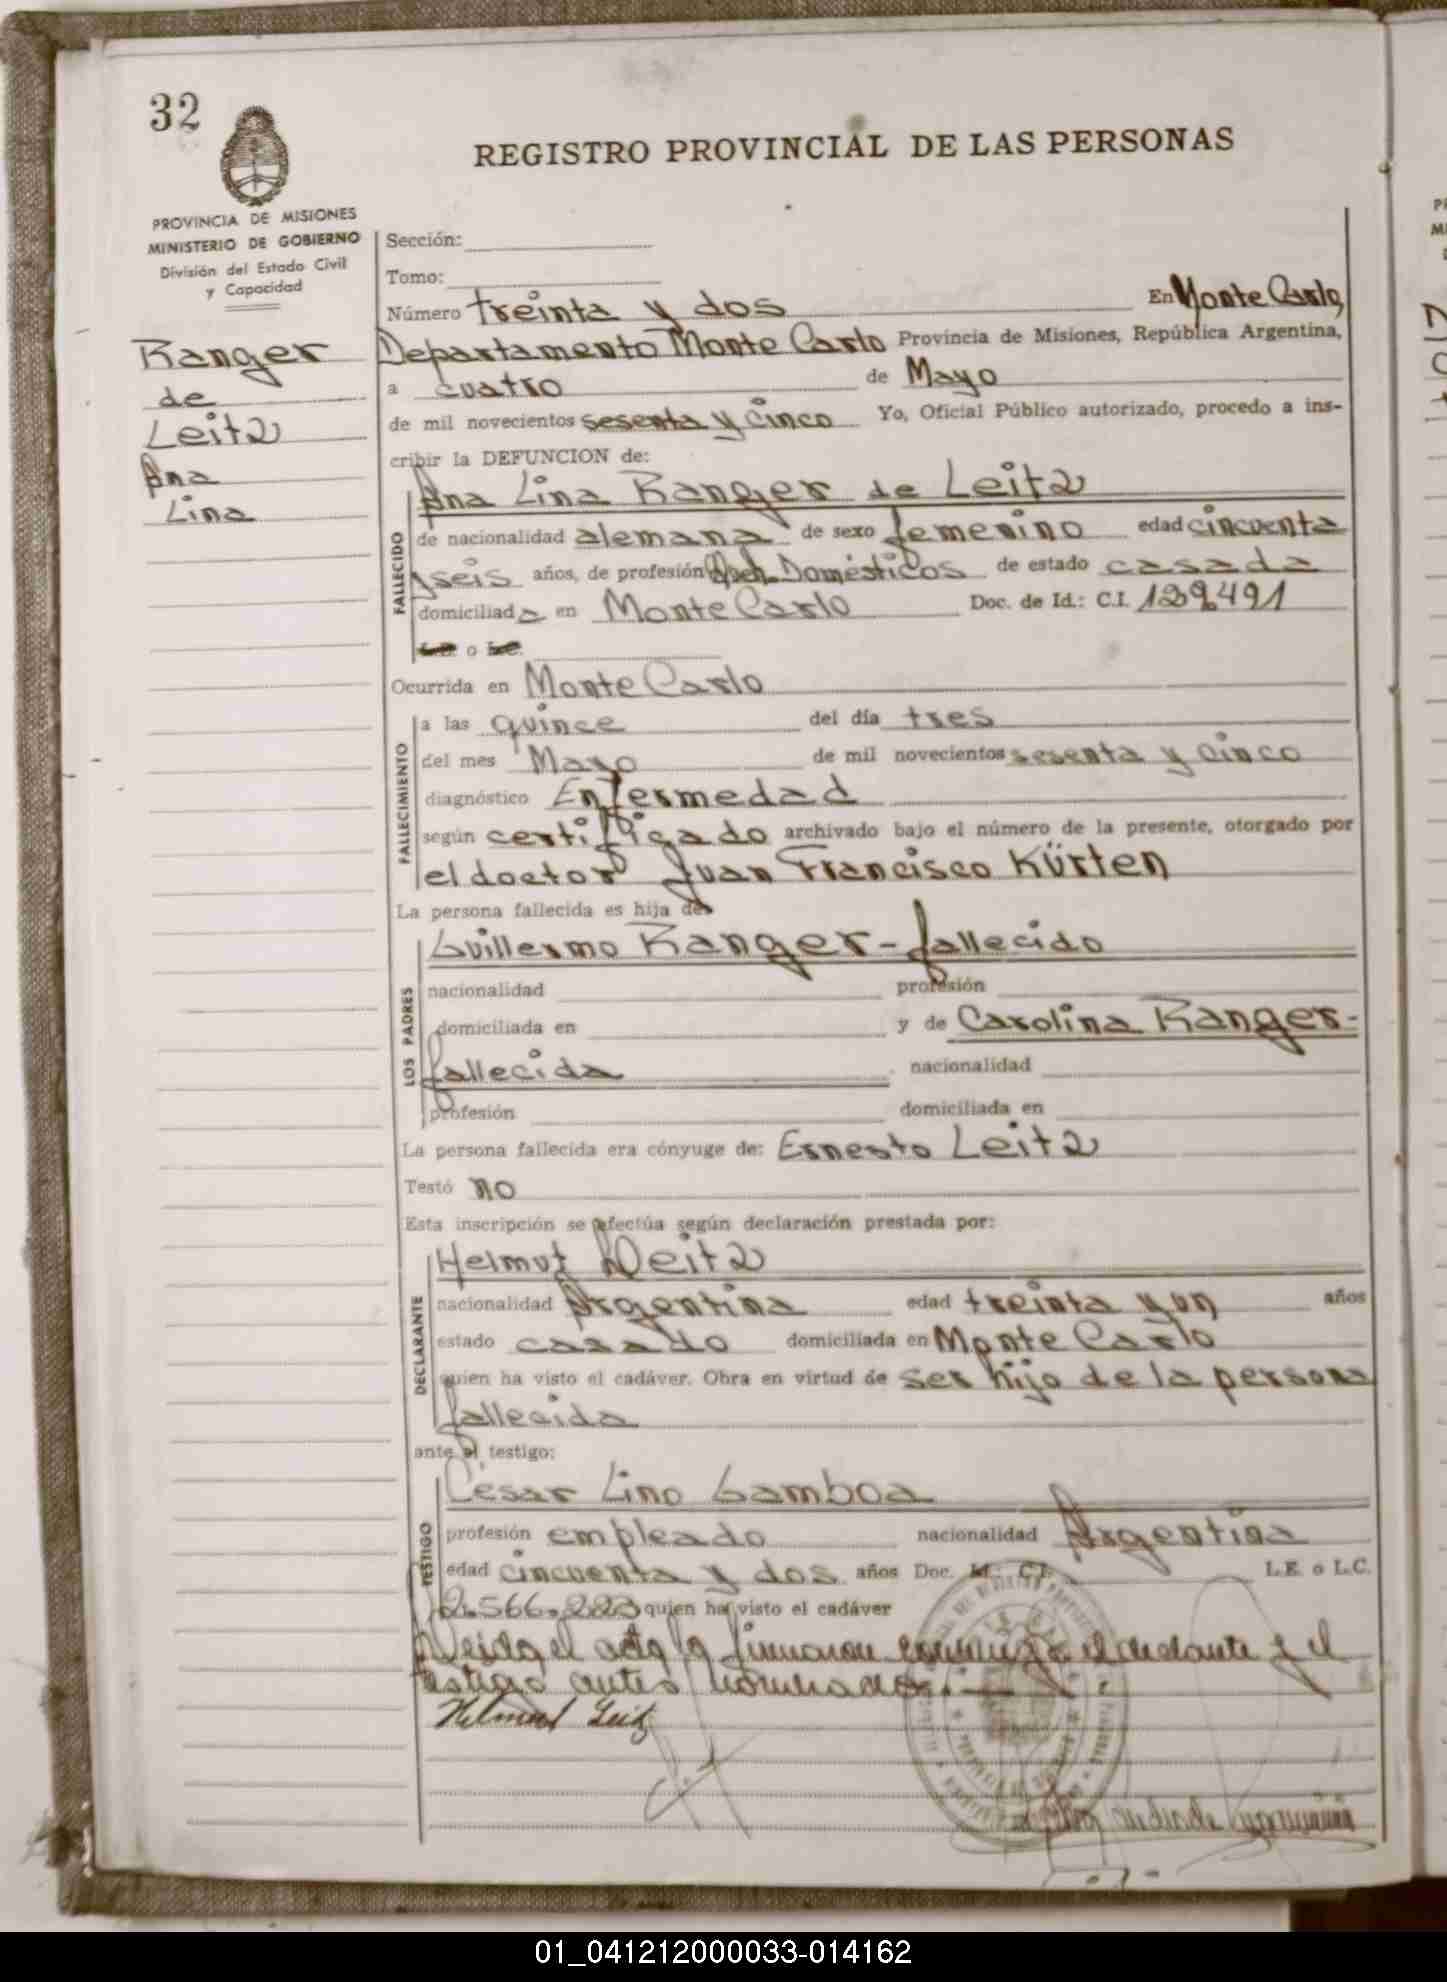 32
REGISTRO PROVINCIAL DE LAS PERSONAS
PROVINCIA DE MISIONES
MINISTERIO DE GOBIERNO
División del Estado Civil
y Capacidad
Ranger
de
Leitz
Ana
Lina
Sección:
Tomo:
Número treinta y dos En Monte Carlo,
Departamento Monte Carlo Provincia de Misiones, República Argentina,
a cuatro de Mayo
de mil novecientos sesenta y cinco Yo, Oficial Público autorizado, procedo a ins-
cribir la DEFUNCION de:
FALLECIDO
Ana Lina Ranger de Leitz
de nacionalidad alemana de sexo femenino edad cincuenta
y seis años, de profesión Domésticos de estado casada
domiciliada en Monte Carlo Doc. de Id.: C.I.
o
Ocurrida en Monte Carlo
FALLECIMIENTO
a las quince del día tres
del mes Mayo de mil novecientos sesenta y cinco
diagnóstico Enfermedad
según certificado archivado bajo el número de la presente, otorgado por
el doctor Juan Francisco Kürten
La persona fallecida es hija de
LOS PADRES
Guillermo Ranger - fallecido
nacionalidad profesión
domiciliada en y de Carolina Ranger-
fallecida nacionalidad
profesión domiciliada en
La persona fallecida era cónyuge de: Ernesto Leitz
Testó no
Esta inscripción se efectúa según declaración prestada por:
DECLARANTE
Helmut Leitz
nacionalidad Argentina edad treinta y un años
estado casado domiciliada en Monte Carlo
quien ha visto el cadáver. Obra en virtud de ser hijo de la persona
fallecida
ante el testigo:
TESTIGO
César Lino Gamboa
profesión empleado nacionalidad Argentina
edad cincuenta y dos años Doc. Id.: C.I. L.E. o L.C.
2.566.223 quien ha visto el cadáver
Leida el acta la firmaron conmigo el declarante y el
testigo antes nombrados.
Helmut Leitz
01_041212000033-014162